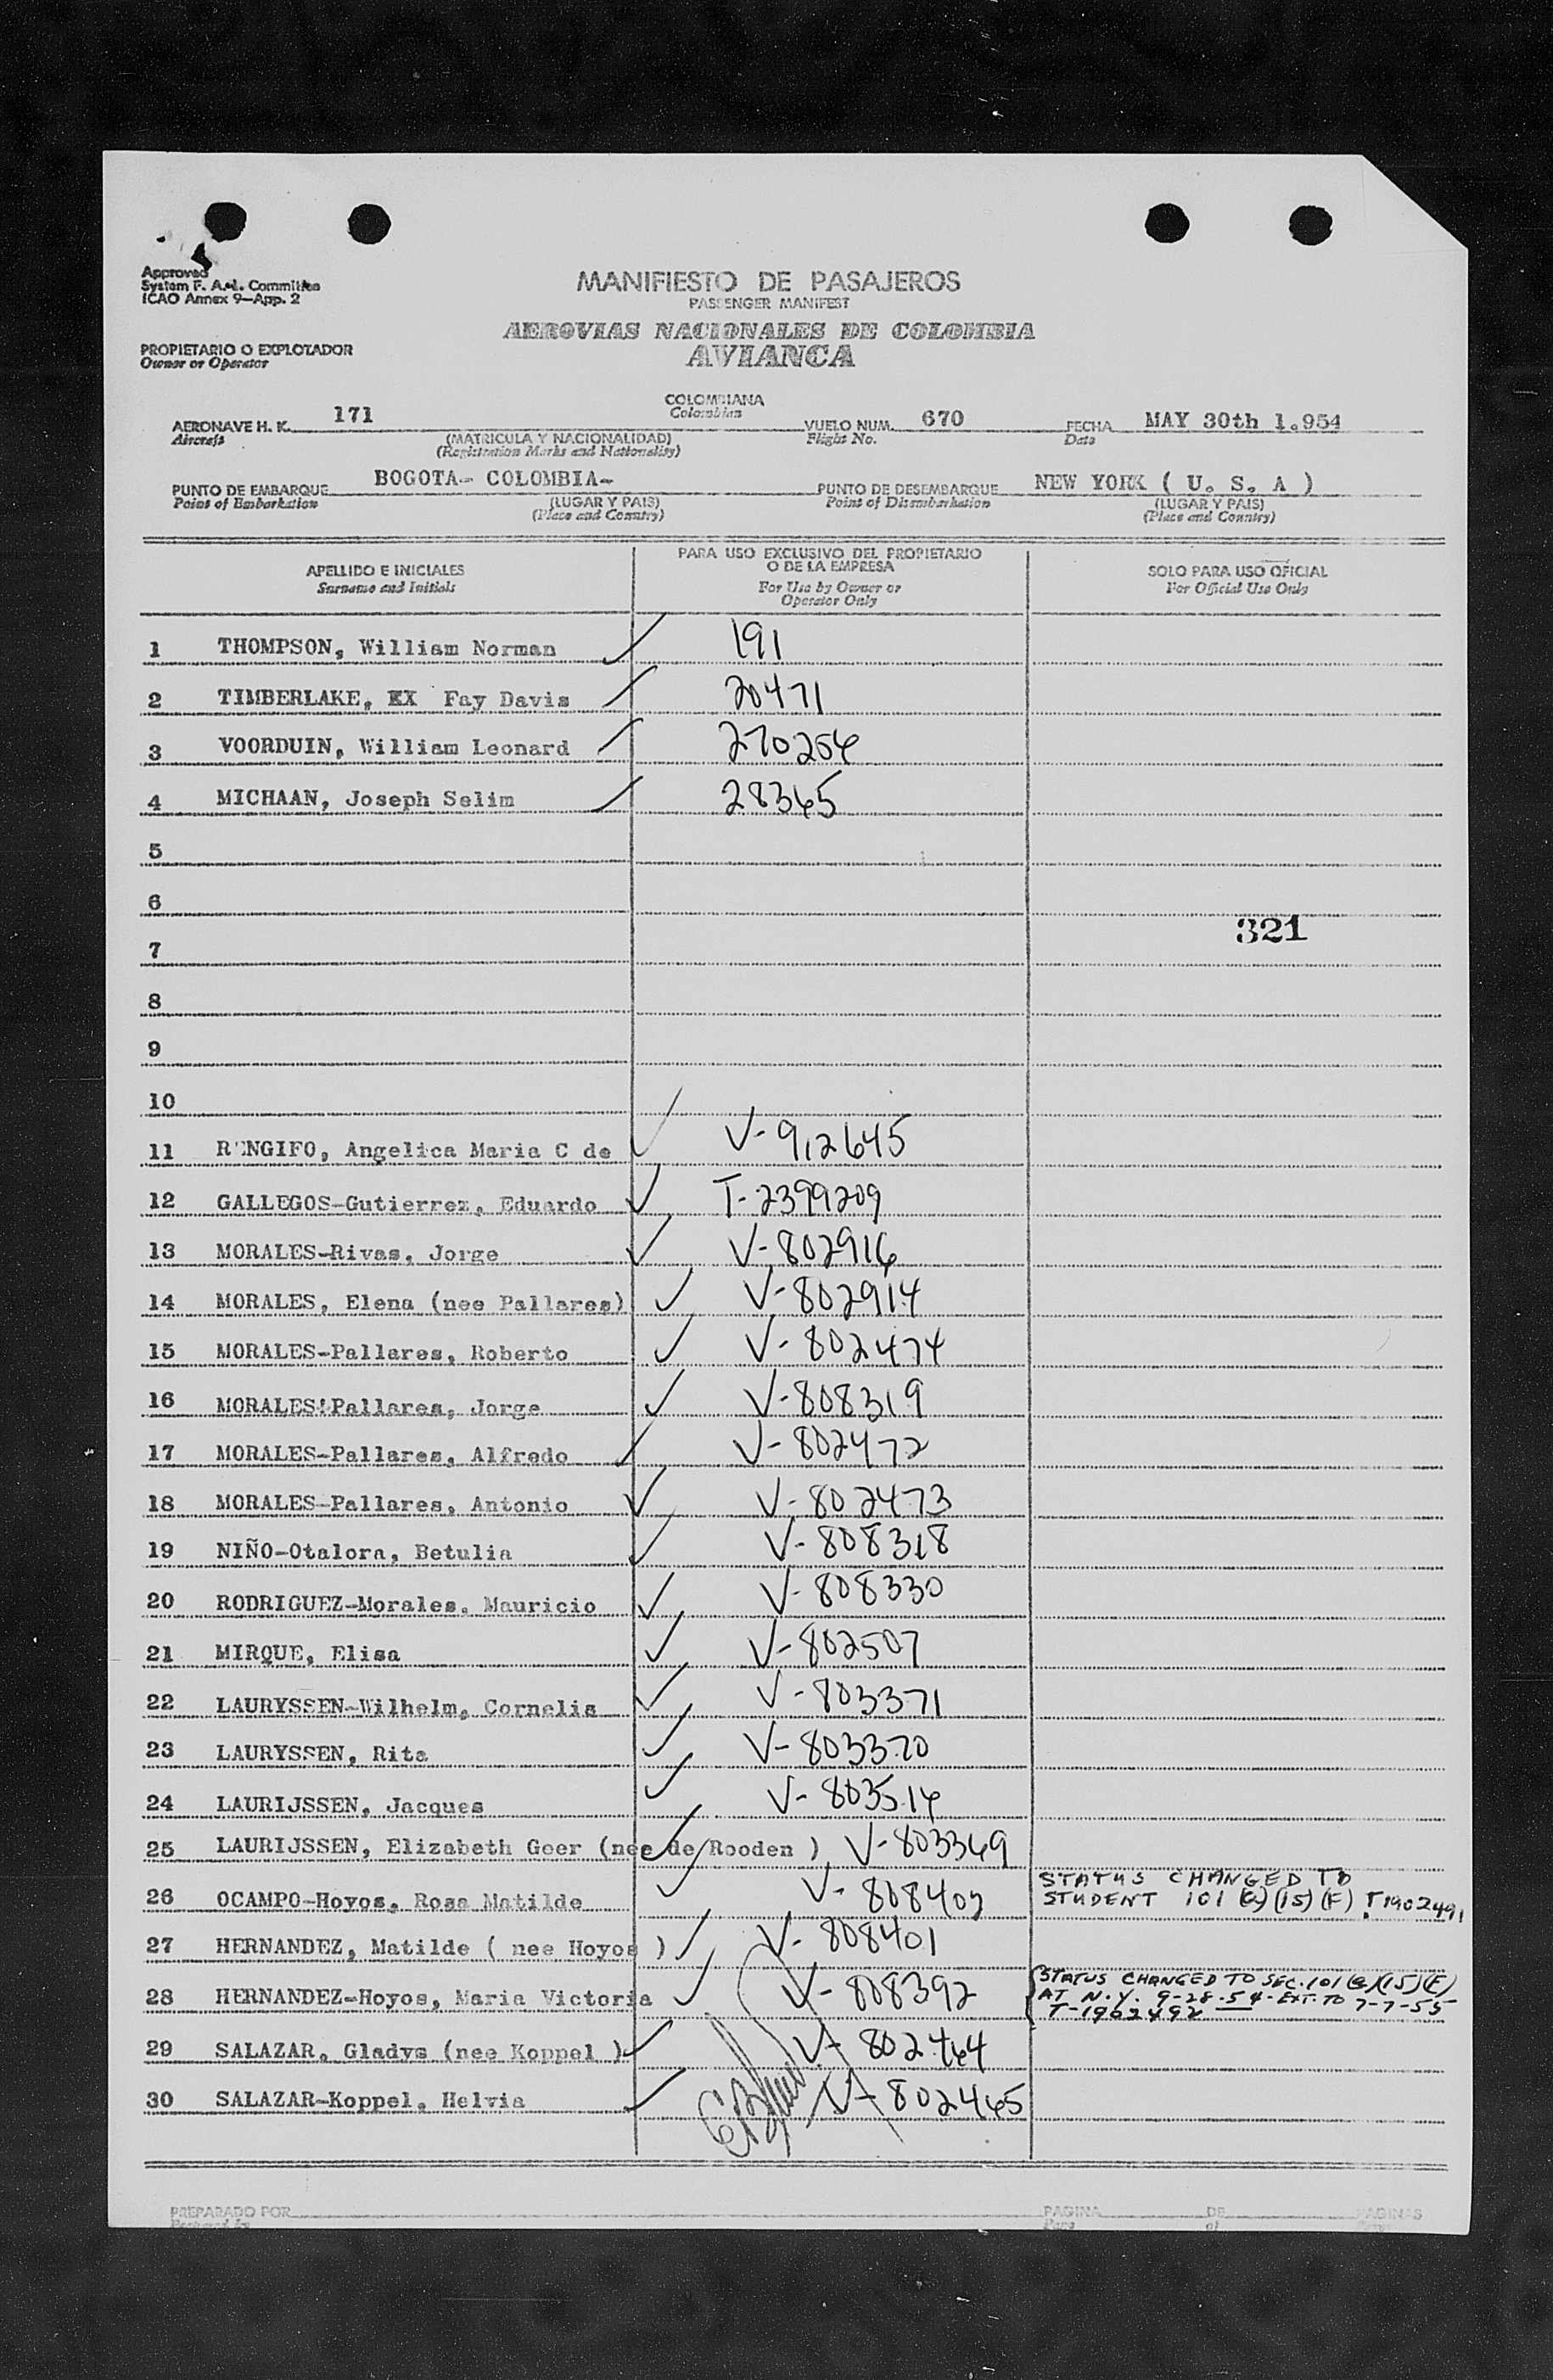 Approved
System F. A. L. Committee
ICAO Annex 9—App. 2
MANIFIESTO DE PASAJEROS
PASSENGER MANIFEST
AEROVIAS NACIONALES DE COLOMBIA
AVIANCA
PROPIETARIO O EXPLOTADOR
Owner or Operator
COLOMBIANA
Colombian
AERONAVE H. K. 171 VUELO NUM. 670 FECHA MAY 30th 1.954
Aircraft (MATRICULA Y NACIONALIDAD) Flight No. Date
(Registration Marks and Nationality)
PUNTO DE EMBARQUE BOGOTA- COLOMBIA- PUNTO DE DESEMBARQUE NEW YORK ( U. S. A )
Point of Embarkation (LUGAR Y PAIS) Point of Disembarkation (LUGAR Y PAIS)
(Place and Country) (Place and Country)
APELLIDO E INICIALES
Surname and Initials
PARA USO EXCLUSIVO DEL PROPIETARIO
O DE LA EMPRESA
For Use by Owner or
Operator Only
SOLO PARA USO OFICIAL
For Official Use Only
1 THOMPSON, William Norman 191
2 TIMBERLAKE, EX Fay Davis 20471
3 VOORDUIN, William Leonard 270254
4 MICHAAN, Joseph Selim 28365
5
6
321
7
8
9
10
11 RENGIFO, Angelica Maria C de V-912645
12 GALLEGOS-Gutierrez, Eduardo T-2399209
13 MORALES-Rivas, Jorge V-802916
14 MORALES, Elena (nee Pallares) V-802914
15 MORALES-Pallares, Roberto V-802474
16 MORALES!Pallares, Jorge V-808319
17 MORALES-Pallares, Alfredo V-802472
18 MORALES-Pallares, Antonio V-802473
19 NIÑO-Otalora, Betulia V-808318
20 RODRIGUEZ-Morales, Mauricio V-808330
21 MIRQUE, Elisa V-802507
22 LAURYSSEN-Wilhelm, Cornelis V-803371
23 LAURYSSEN, Rita V-803370
24 LAURIJSSEN, Jacques V-803514
25 LAURIJSSEN, Elizabeth Goer (nee de Rooden ) V-803369
STATUS CHANGED TO
26 OCAMPO-Hoyos, Rosa Matilde V-808402 STUDENT 101 (a) (15) (F) T1902491
27 HERNANDEZ, Matilde ( nee Hoyos ) V-808401
STATUS CHANGED TO SEC. 101 (a)(15)(F)
28 HERNANDEZ-Hoyos, Maria Victoria V-808392 AT N.Y. 9-28-54-EXT. TO 7-7-55
T-1902492
29 SALAZAR, Gladys (nee Koppel ) V-802464
30 SALAZAR-Koppel, Helvia V-802465
PREPARADO POR PAGINA DE PAGINAS
Prepared by Page of